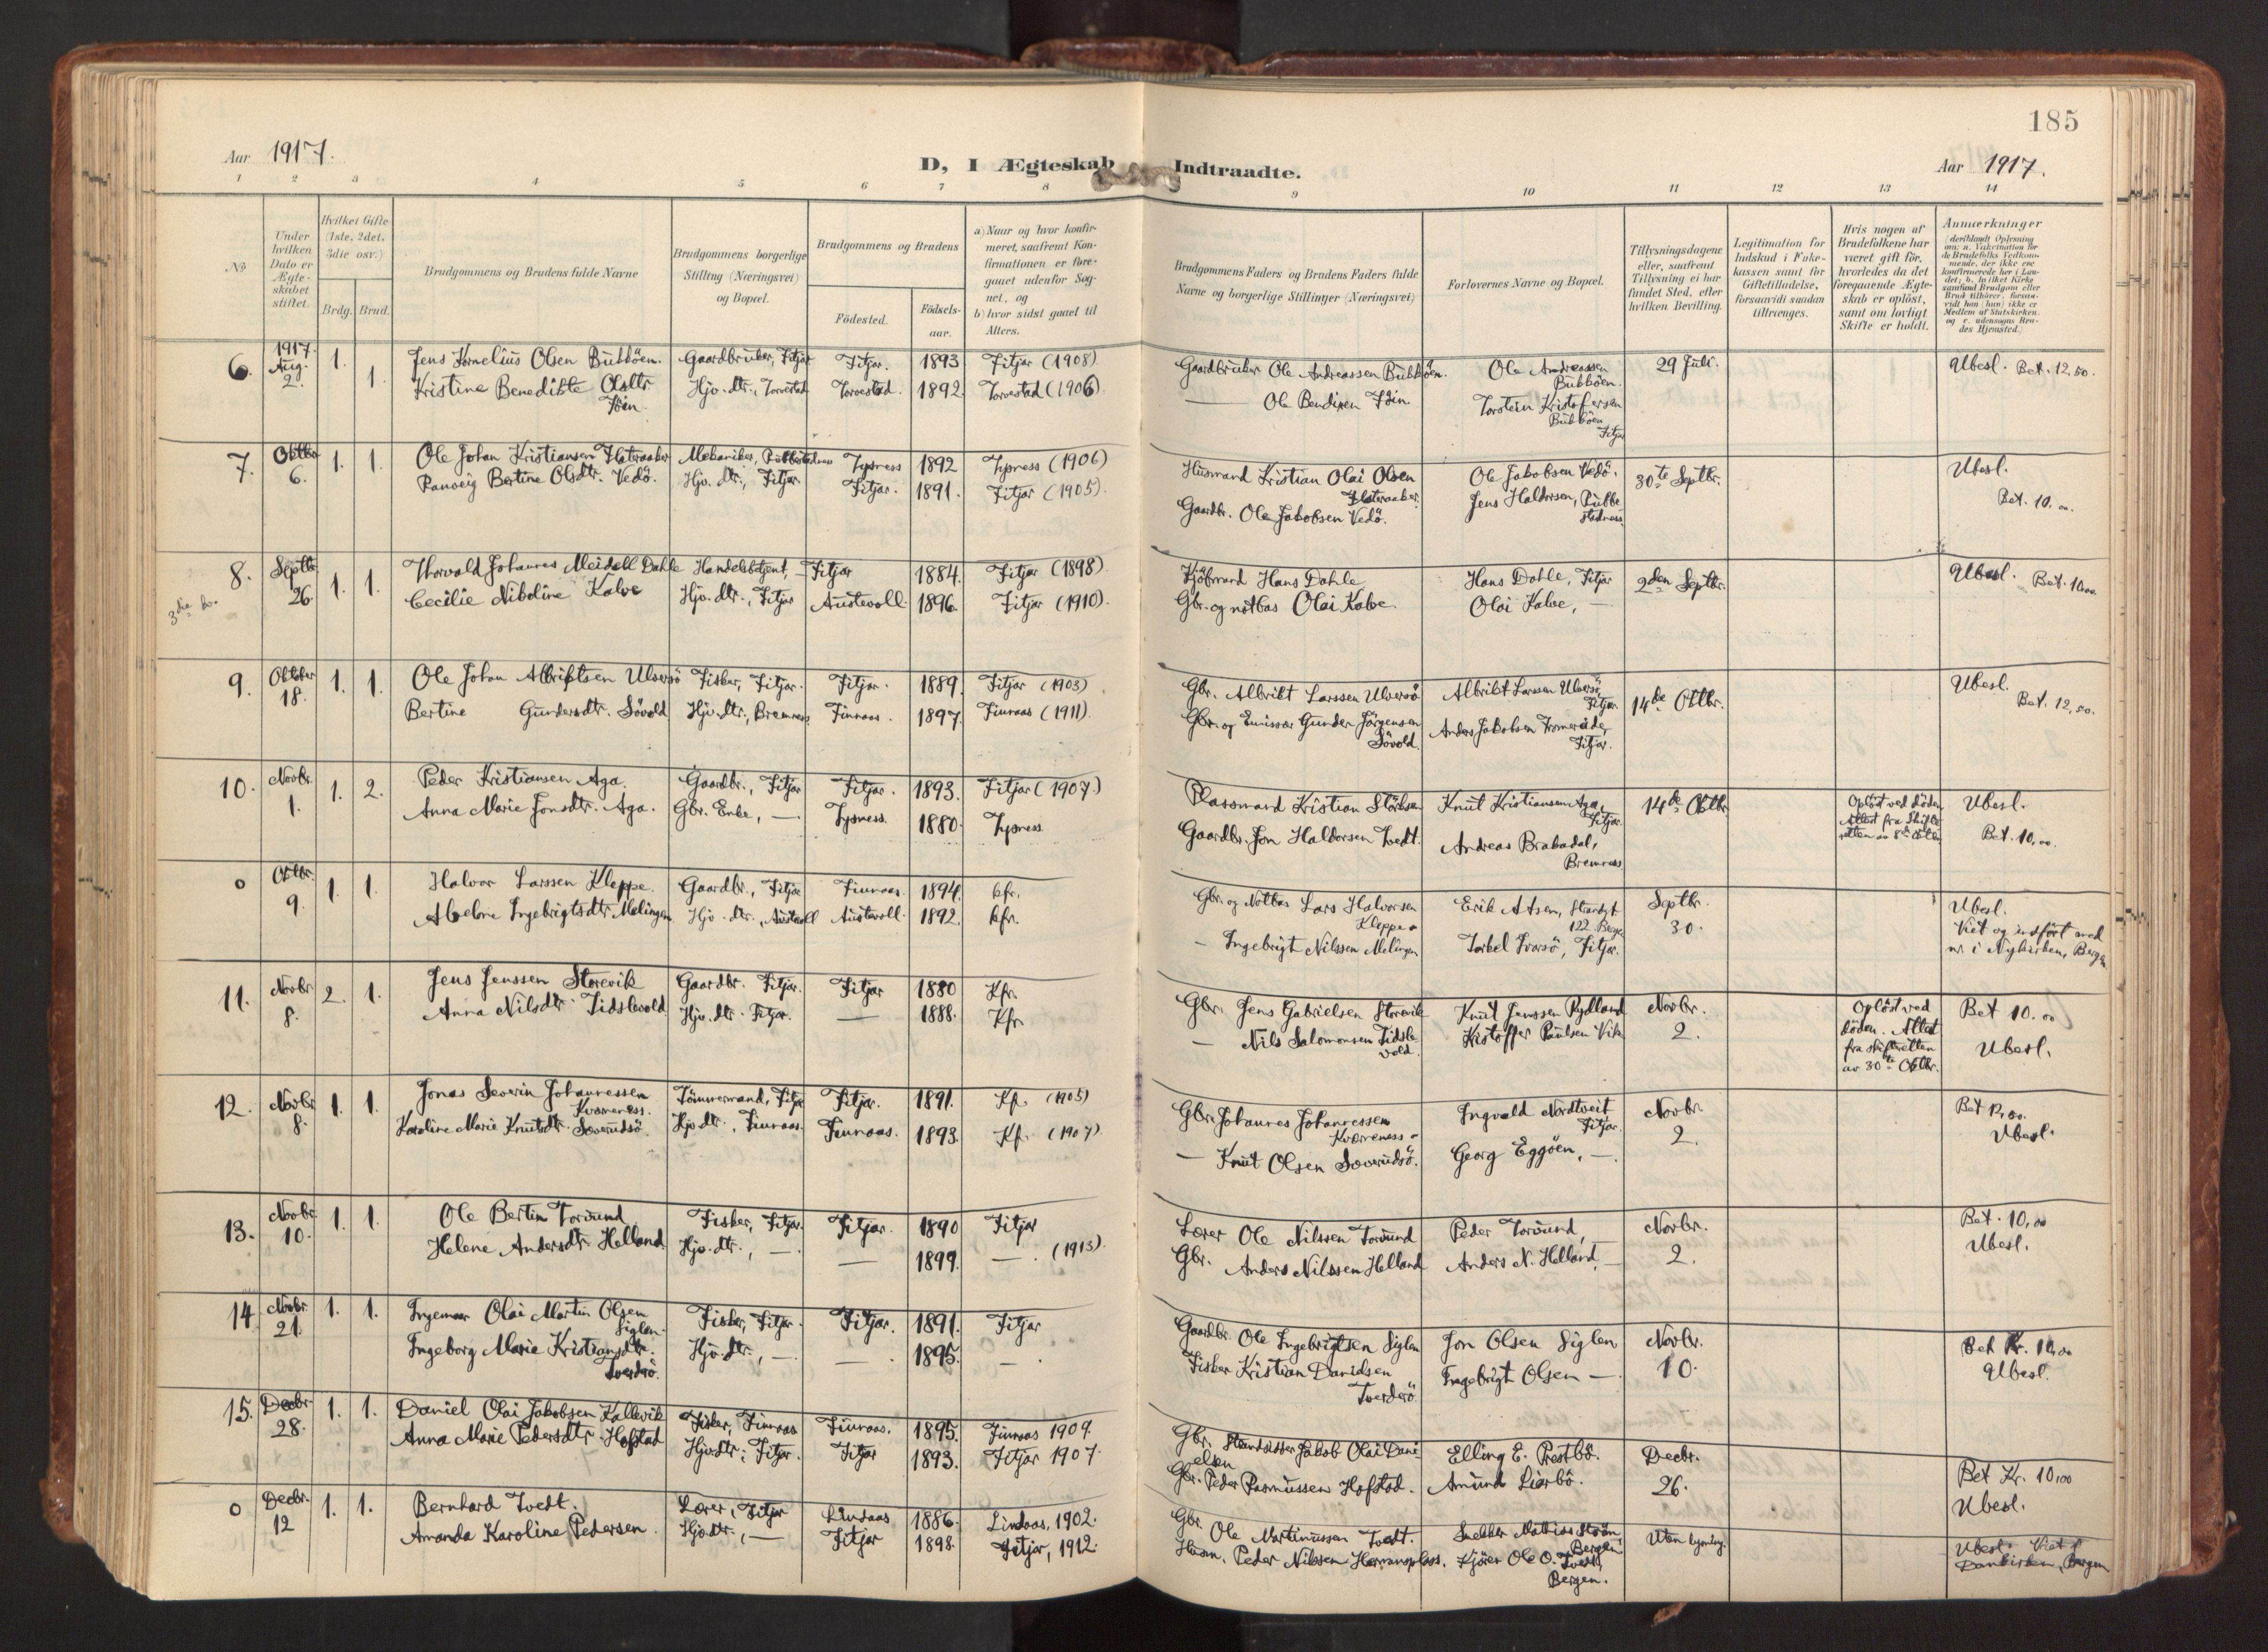 185
Aar 1917.
D, I Ægteskab Indtraadte.
Aar 1917.
1 2 3 4 5 6 7 8 9 10 11 12 13 14
№
Under hvilken Dato er Ægteskabet stiftet.
Hvilket Gifte (1ste, 2det, 3die osv.)
Brdg. Brud.
Brudgommens og Brudens fulde Navne
Brudgommens borgerlige Stilling (Næringsvei) og Bopæl.
Brudgommens og Brudens
Fødested.
Fødselsaar.
a) Naar og hvor konfirmeret, saafremt Konfirmationen er foregaaet udenfor Sognet, og
b) hvor sidst gaaet til Alters.
Brudgommens Faders og Brudens Faders fulde Navne og borgerlige Stillinger (Næringsvei)
Forlovernes Navne og Bopæl.
Tillysningsdagene eller, saafremt Tillysning ei har fundet Sted, efter hvilken Bevilling.
Legitimation for Indskud i Enkekassen samt for Giftetilladelse, forsaavidt saadan tiltrænges.
Hvis nogen af Brudefolkene har været gift før, hvorledes da det foregaaende Ægteskab er opløst, samt om lovligt Skifte er holdt.
Anmærkninger (deriblandt Oplysning om: a. Vakcination for de Brudefolks Vedkommende, der ikke ere konfirmerede her i Landet; b. hvilket Kirkesamfund Brudgom eller Brud tilhører, forsaavidt han (hun) ikke er Medlem af Statskirken, og c. udensogns Brudes Hjemsted.)
6. 1917 Aug. 2. 1. Jens Kornelius Olsen Bukkøen. Gaardbruker, Fitjar Fitjar. 1893 Fitjar (1908) Gaardbruker Ole Andreassen Bukkøen. Ole Andreassen Bukkøen. 29 Juli. Ubesl. Bet. 12,50.
1. Kristine Benedikte Olsdtr. Hjv. dtr., Torvestad Torvestad. 1892. Torvestad (1906) — Ole Bendixen Torstein Kristofersen Bukkøen Fitjar
7. Oktbr. 6. 1. 1. Ole Johan Kristiansen Flateraaker Mekaniker, Rubbestadnes Tysnes 1892 Tysnes (1906) Husmand Kristian Olai Olsen Flateraaker Ole Jakobsen Vedø. 30te Septbr. Ubesl.
Ranveig Bertine Olsdtr. Vedø. Hjv. dtr., Fitjar Fitjar. 1891. Fitjar (1905). Gaardbr. Ole Jakobsen Vedø. Jens Haldorsen, Rubbestadnes Bet. 10.00
8. 3die kv. Septbr. 26. 1. 1. Thorvald Johannes Meidell Dahle Handelsbetjent, — Fitjar 1884. Fitjar (1898) Kjøbmand Hans Dahle Hans Dahle, Fitjar 2den Septbr. Ubesl. Bet. 10.00
Cecilie Nikoline Kalve Hjv. dtr., Fitjar Austevoll 1896. Fitjar (1910). Gbr. og notbas Olai Kalve. Olai Kalve, —
9. Oktober 18. 1. 1. Ole Johan Albriktsen Ulversø Fisker, Fitjar. Fitjar. 1889. Fitjar (1903) Gbr. Albrikt Larssen Ulversø Albrikt Larssen Ulversø, Fitjar 14de Oktbr. Ubesl.
Bertine Gundersdtr. Søvold Hjv. dtr., Bremnes Finnaas. 1897. Finnaas (1911). Gbr. og Emissær Gunder Jørgensen Søvold Anders Jakobsen Fitjar. Bet. 12,50.
10. Novbr. 1. 1. 2. Peder Kristiansen Aga. Gaardbr., Fitjar Fitjar. 1893. Fitjar (1907.) Plassmand Kristian Knut Kristiansen Aga, Fitjar. 14de Oktbr. Opløst ved døden Attest fra Skifteretten av 8de Oktbr. Ubesl.
Anna Marie Jonsdtr. Aga. Gbr. Enke, — Tysnes. 1880. Tysnes. Gaardbr. Jon Haldorsen Tvedt. Andreas Brakadal, Bremnes Bet. 10,00.
0 Oktbr. 9. 1. 1. Halvor Larssen Kleppe. Gaardbr., Fitjar Finnaas. 1894. kfr. Gbr. og Notbas Lars Halvorsen Kleppe Erik Atsen, Strandgt. 122 Bergen Septbr. 30. Ubesl.
Ingebrigtsdtr. Melingen Hjv. dtr., Austevoll Austevoll. 1892. kfr. — Ingebrigt Nilssen Melingen Torkel Fitjar. Viet og indført med nr. i Nykirken, Bergen
11. Novbr. 8. 2. 1. Jens Jenssen Storevik Gaardbr. Fitjar. Fitjar 1880 Kfr. Gbr. Jens Gabrielsen Storevik Knut Jenssen Rydland Novbr. 2. Opløst ved døden. Attest fra skifteretten av 30te Oktbr. Bet 10.00
Anna Nilsdtr. Tidslevold Hjv. dtr. Fitjar. — 1888. Kfr — Nils Salomonsen Tidslevold. Kristoffer Paulsen Vik Ubesl.
12. Novbr. 8. 1. 1. Jonas Severin Johannessen Kværneness. Tømmermand, Fitjar Fitjar. 1891. Kf. (1905) Gbr. Johannes Johannessen Kværneness Ingvald Nordtveit Fitjar. Novbr. 2.
Karoline Marie Knutsdtr. Hjv dtr., Finnaas. Finnaas. 1893. Kf. (1907). — Knut Olsen Georg Eggøen, —. Ubesl.
13. Novbr. 10. 1. 1. Ole Bertin Torsund Fisker, Fitjar. Fitjar. 1890 Fitjar Lærer Ole Nilssen Torsund Peder Torsund, — Novbr. 2. Bet. 10,00
Helene Andersdtr. Helland. Hjv. dtr., — — 1899. — (1913). Gbr. Anders Nilssen Helland Anders N. Helland, — Ubesl.
14. Novbr. 21. 1. 1. Ingemar Olai Martin Olsen Siglen. Fisker, Fitjar. Fitjar. 1891. Fitjar Gaardbr. Ole Ingebrigtsen Siglen Jon Olsen Siglen Novbr. 10.
Ingeborg Marie Kristiansdtr. Tverderø. Hjv. dtr., — —. 1895. —. Fisker Kristian Danielsen Tverderø Ingebrigt Olsen — Ubesl.
15. Decbr. 28. 1. 1. Daniel Olai Jakobsen Kallevik Fisker, Finnaas Finnaas. 1895. Finnaas 1909. Gbr. Strandsidder Jakob Olai Danielsen Elling E. Prestbø. Decbr. 26. Bet Kr. 10,00
Anna Marie Pedersdtr. Hofstad Hjv dtr. Fitjar. Fitjar 1893. Fitjar 1907. Gbr. Peder Rasmussen Hofstad. Amund Liarbø. Ubesl.
0 Decbr. 12 1. 1. Bernhard Tvedt. Lærer, Fitjar Lindaas 1886. Lindaas, 1902. Gbr. Ole Martinussen Tvedt. Snekker Mathias Strøm Bergen Uten lysning. Ubesl. Viet i Domkirken, Bergen
Amanda Karoline Pedersen. Hjv. dtr., — Fitjar 1898. Fitjar, 1912. Husm. Peder Nilssen Hermansplass. Kjører Ole O. Tvedt, Bergen.